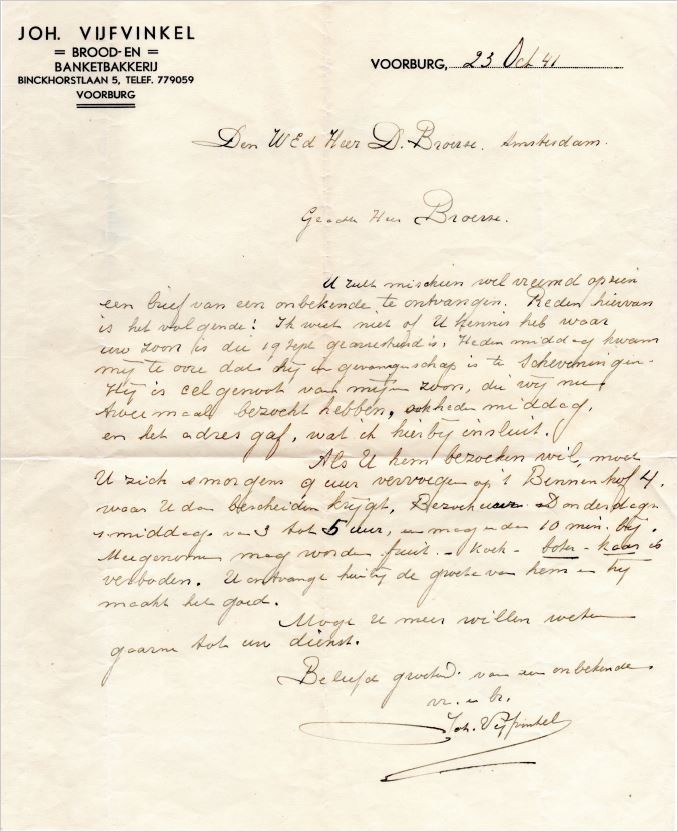 JOH. VIJFVINKEL
= BROOD- EN =
BANKETBAKKERIJ
BINCKHORSTLAAN 5, TELEF. 779059
VOORBURG
VOORBURG, 23 Oct 41
Den WEd Heer D. Broerse. Amsterdam.
Geachte Heer Broerse.
U zult mischien wel vreemd opzien
een brief van een onbekende te ontvangen. Reden hiervan
is het volgende! Ik weet niet of U kennis heb waar
uw zoon is die 19 Sept gearresteerd is. Heden middag kwam
mij te oore dat hij in gevangenschap is te Scheveningen.
Hij is celgenoot van mijn zoon, die wij nu
tweemaal bezocht hebben, ook heden middag,
en het adres gaf, wat ik hierbij insluit.
Als U hem bezoeken wil, moet
U zich smorgens 9 uur vervoegen op 't Binnenhof 4.
waar U dan bescheiden krijgt, Bezoekuur Donderdags
smiddags van 3 tot 5 uur, en mag dan 10 min. bij.
Meegenomen mag worden fruit. - Koek - boter - kaas is
verboden. U ontvangt hierbij de groete van hem en hij
maakt het goed.
Mogt U meer willen weten
gaarne tot uw dienst.
Beleefd groetend van een onbekende
vr. en br.
Joh. Vijfvinkel